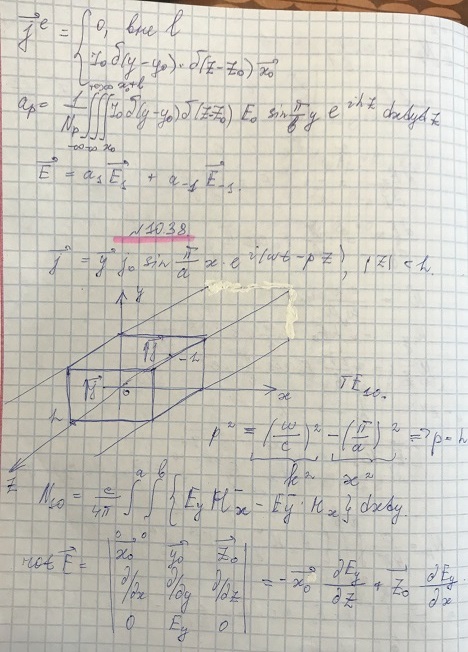 j⃗ᵉ = { 0, вне l
J₀ δ(y-y₀)·δ(z-z₀) x⃗₀
aₚ = 1/Nₚ ∫∫∫ J₀ δ(y-y₀) δ(z-z₀) E₀ sin π/b y e^{ihz} dxdydz
-∞ -∞ x₀
E⃗ = a₁E⃗₁ + a₋₁E⃗₋₁.
№10.38.
j⃗ = y⃗ j₀ sin π/a x · e^{i(ωt-pz)}, |z| < h.
y
-h
j⃗
j⃗ 0 x TE₁₀.
h
p² = (ω/c)² - (π/a)² => p = h
k² x²
z
N₁₀ = c/4π ∫₀ᵃ ∫₀ᵇ { E_y H_x⁻ - E_y⁻ · H_x } dxdy.
rot E⃗ = | x⃗₀ y⃗₀ z⃗₀ |
| ∂/∂x ∂/∂y ∂/∂z | = -x⃗₀ ∂E_y/∂z + z⃗₀ ∂E_y/∂x
| 0 E_y 0 |